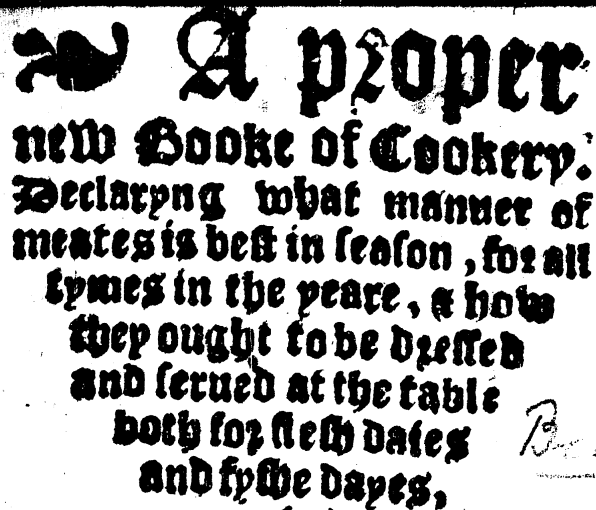 ❧ A proper
new Booke of Cookery.
Declaryng what manner of
meates is best in season, for all
tymes in the yeare, & how
they ought to be dressed
and serued at the table
both for flesh daies
and fyshe dayes,